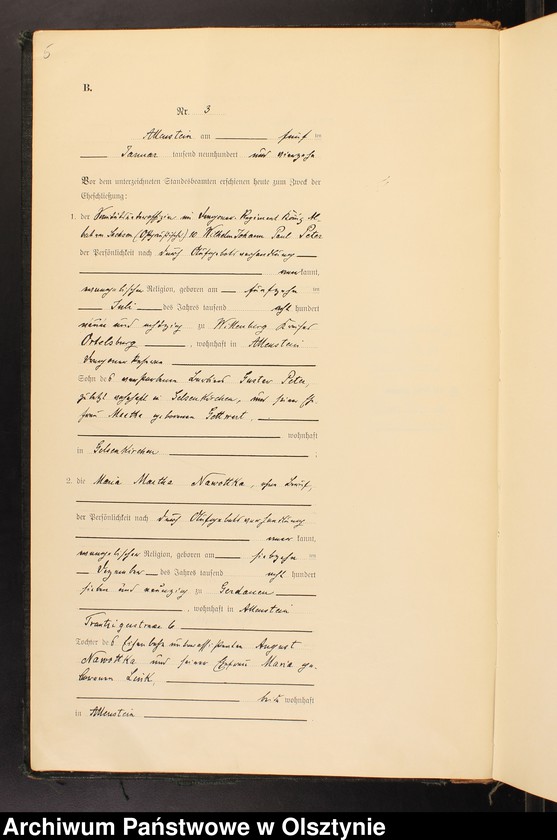 5
B.
Nr. 3
Allenstein am fünf ten
Januar tausend neunhundert und vierzehn
Vor dem unterzeichneten Standesbeamten erschienen heute zum Zweck der
Eheschließung:
1. der Sanitätsunteroffizier im Dragoner-Regiment König Al-
bert von Sachsen (Ostpreußisch.) 10 Wilhelm Johann Paul Peter
der Persönlichkeit nach durch Aufgebotsverhandlung
anerkannt,
evangelischer Religion, geboren am fünfzehn ten
Juli des Jahres tausend acht hundert
neun und achtzig zu Willenberg Kreises
Ortelsburg, wohnhaft in Allenstein
Dragoner Kaserne
Sohn des verstorbenen Gustav Peter,
zuletzt wohnhaft in Gelsenkirchen, und seiner Ehe-
frau geborenen Gottwert.
wohnhaft
in Gelsenkirchen
2. die Maria Martha Nawottka, ohne Beruf,
der Persönlichkeit nach durch Aufgebotsverhandlung
anerkannt,
evangelischer Religion, geboren am siebzehn ten
Dezember des Jahres tausend acht hundert
sieben und neunzig zu Gerdauen
, wohnhaft in Allenstein
6
Tochter des August
Nawottka und seiner Ehefrau Maria ge-
borenen
beide wohnhaft
in Allenstein
Archiwum Państwowe w Olsztynie